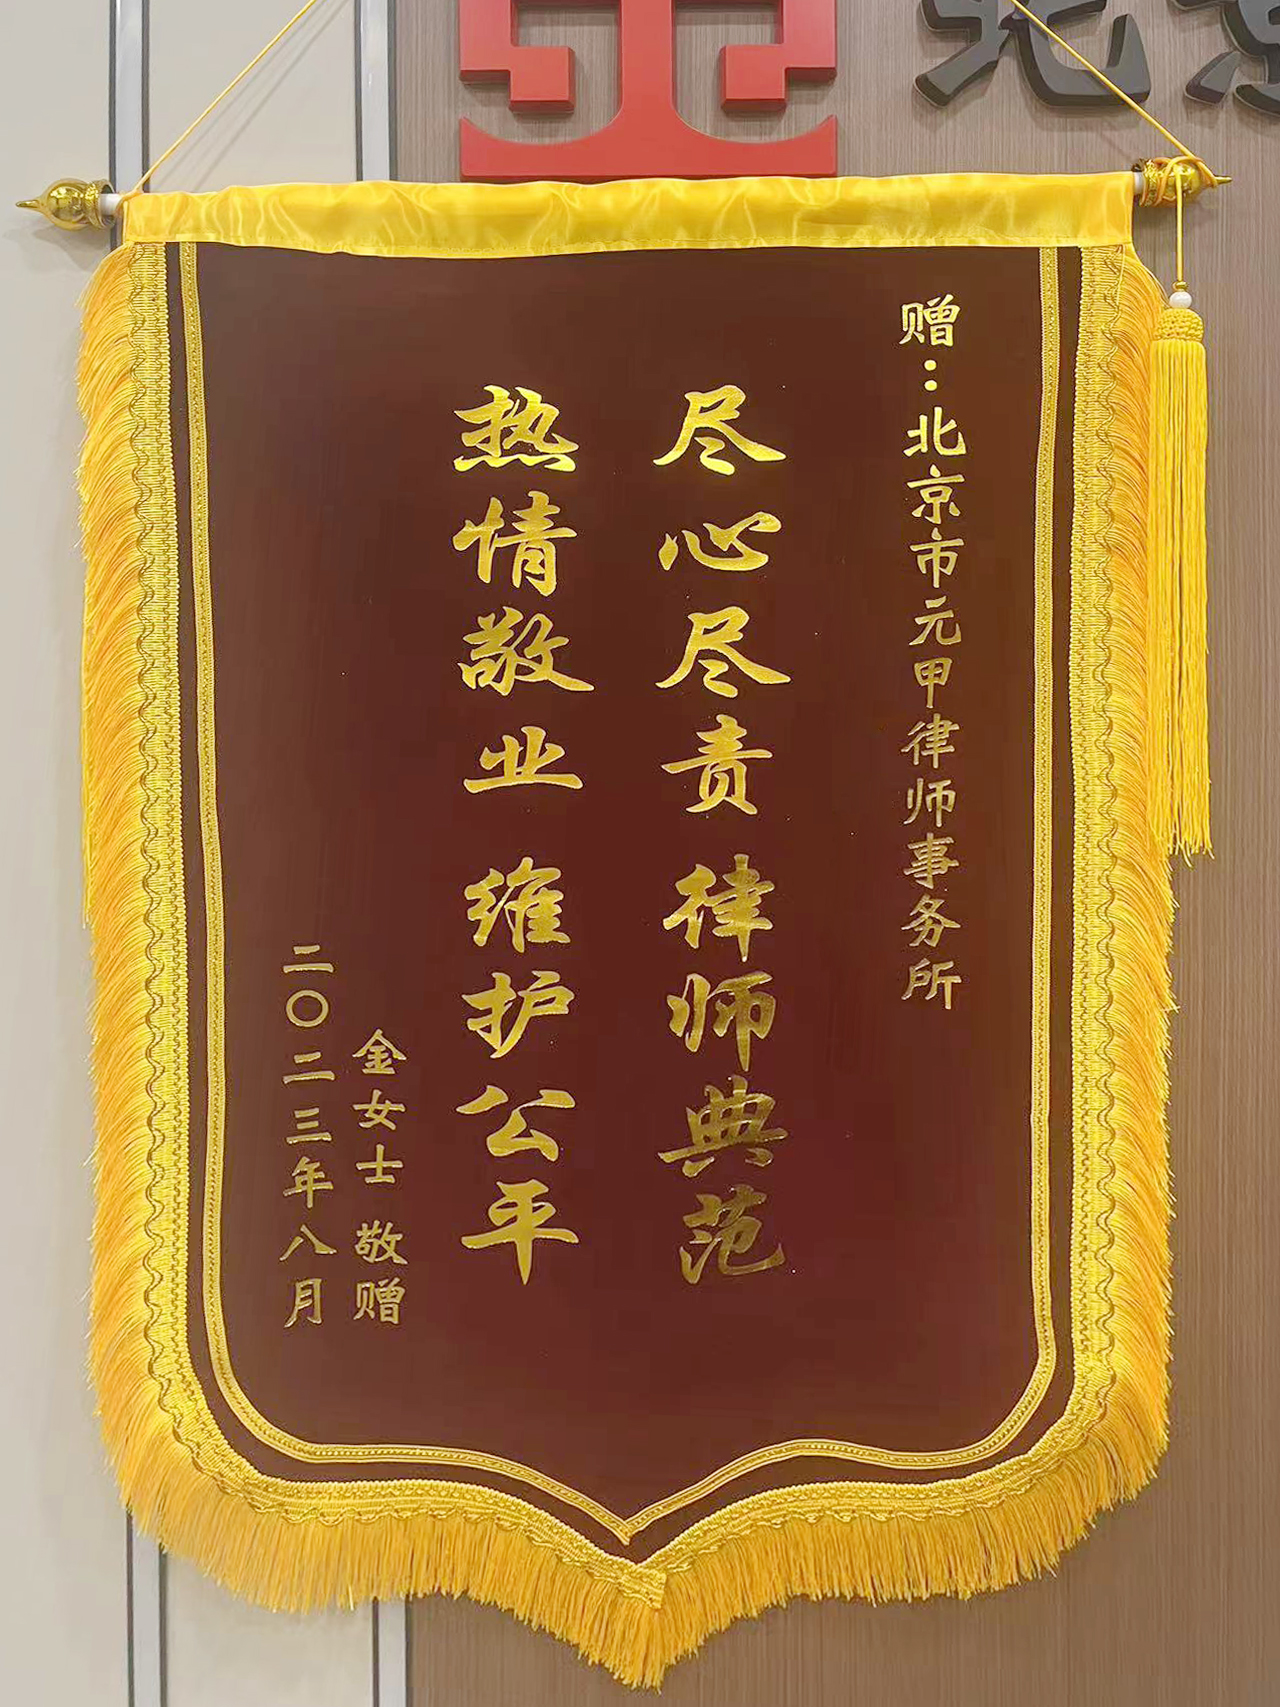 北京
赠：北京市元甲律师事务所
尽心尽责 律师典范
热情敬业 维护公平
金女士 敬赠
二〇二三年八月